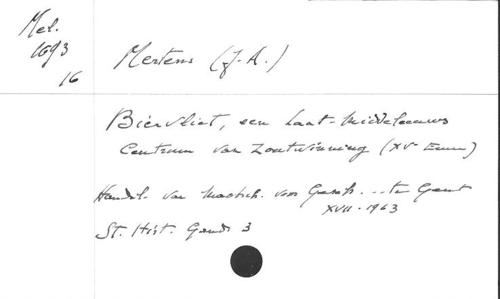 Mel.
1693
16
Mertens (J.A.)
Biervliet, een Laat-Middeleeuws
Centrum van Zoutwinning (XVe Eeuw)
Handel. van Maatsch. voor Gesch. ... te Gent
XVII. 1963
St. Hist. Gand. 3